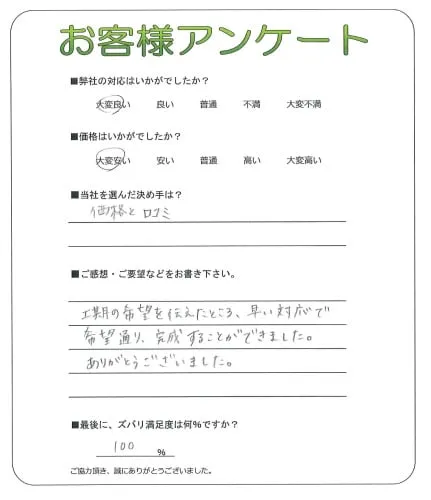 お客様アンケート
■弊社の対応はいかがでしたか？
大変良い 良い 普通 不満 大変不満
■価格はいかがでしたか？
大変安い 安い 普通 高い 大変高い
■当社を選んだ決め手は？
価格と口コミ
■ご感想・ご要望などをお書き下さい。
工期の希望を伝えたところ、早い対応で
希望通り、完成することができました。
ありがとうございました。
■最後に、ズバリ満足度は何％ですか？
100 ％
ご協力頂き、誠にありがとうございました。